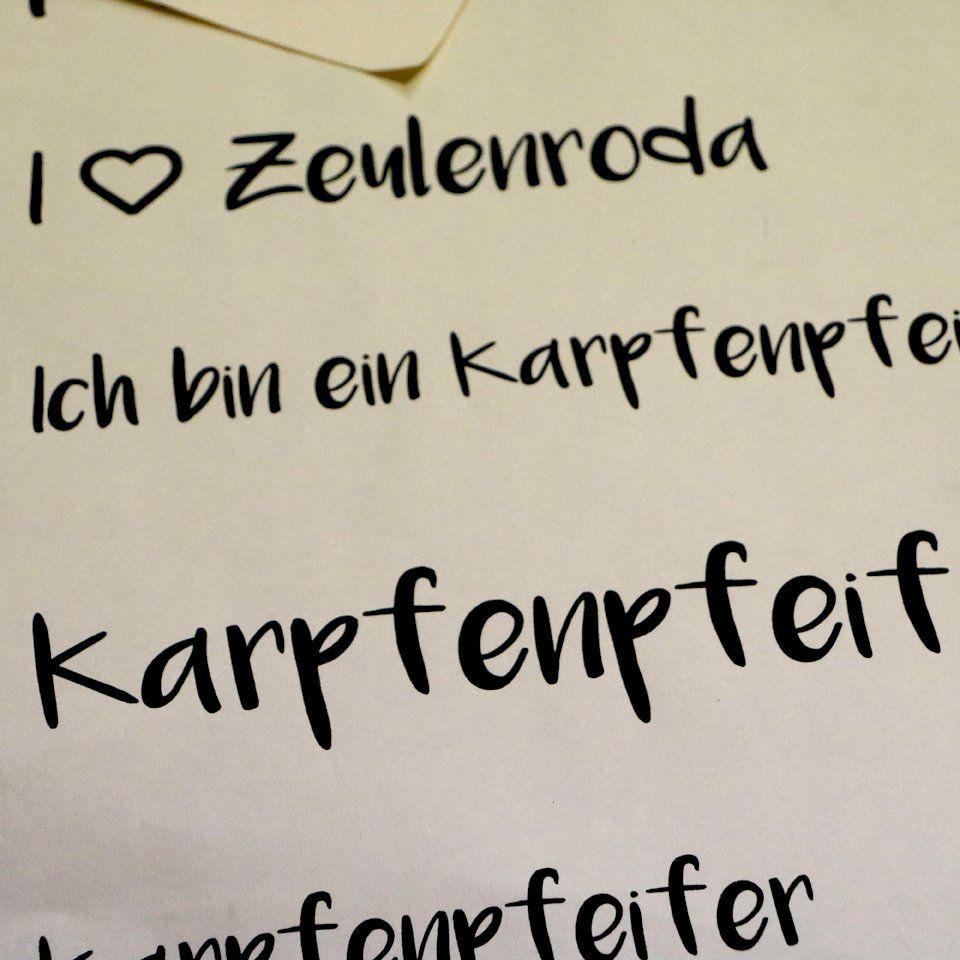 I ♡ Zeulenroda
Ich bin ein Karpfenpfei
Karpfenpfeif
Karpfenpfeifer